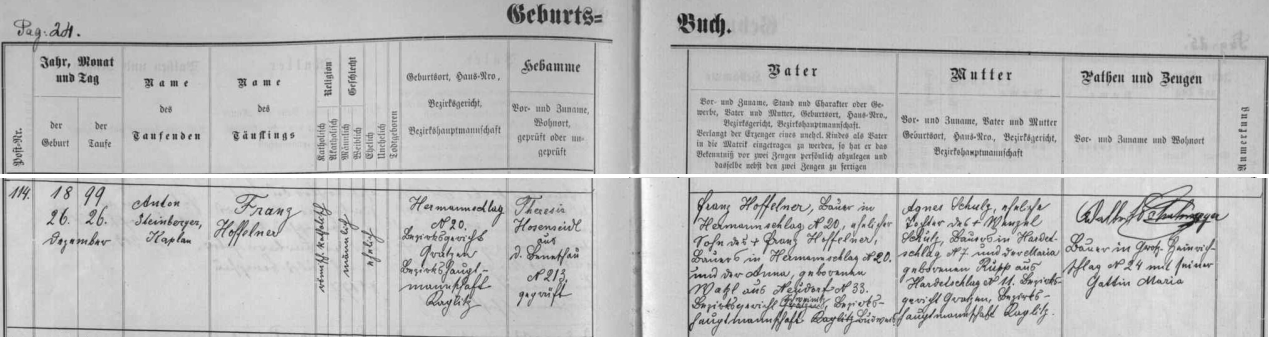 Pag: 24.
Geburts=
Buch.
Post-Nr.
Jahr, Monat
und Tag
der
Geburt
der
Taufe
Name
des
Taufenden
Name
des
Täuflings
Religion
Katholisch
Akatholisch
Geschlecht
Männlich
Weiblich
Ehelich
Unehelich
Todtgeboren
Geburtsort, Haus-Nro,
Bezirksgericht,
Bezirkshauptmannschaft
Hebamme
Vor- und Zuname,
Wohnort,
geprüft oder un-
geprüft
Vater
Vor- und Zuname, Stand und Charakter oder Ge-
werbe, Vater und Mutter, Geburtsort, Haus-Nro.,
Bezirksgericht, Bezirkshauptmannschaft.
Verlangt der Erzeuger eines unehel. Kindes als Vater
in die Matrik eingetragen zu werden, so hat er das
Bekenntniß vor zwei Zeugen persönlich abzulegen und
dasselbe nebst den zwei Zeugen zu fertigen
Mutter
Vor- und Zuname, Vater und Mutter
Geburtsort, Haus-Nro., Bezirksgericht,
Bezirkshauptmannschaft
Pathen und Zeugen
Vor- und Zuname und Wohnort
Anmerkung
114.
18 99
26. 26.
Dezember
Anton
Steinberger,
Kaplan
Franz
Hoffelner
römisch katholisch
männlich
ehelich
Hermannschlag
N 20.
Bezirksgericht
Gratzen
Bezirkshaupt-
mannschaft
Kaplitz
Theresia
Hosenseidl
aus
d. Beneschau
N 213
geprüft
Franz Hoffelner, Bauer in
Hermannschlag N 20, ehelicher
Sohn des + Franz Hoffelner,
Bauers in Hermannschlag N 20.
und der Anna, geborenen
Wahl aus Neudorf N 33.
Bezirksgericht Gratzen, Bezirks-
hauptmannschaft Kaplitz Budweis
Agnes Schulz, eheliche
Tochter des + Wenzel
Schulz, Bauers in Hardet-
schlag N 7 und der Maria
geborenen Rupp aus
Hardetschlag N 11. Bezirks-
gericht Gratzen, Bezirks-
hauptmannschaft Kaplitz.
Bauer in Groß. Heinrich-
schlag N 24 mit seiner
Gattin Maria